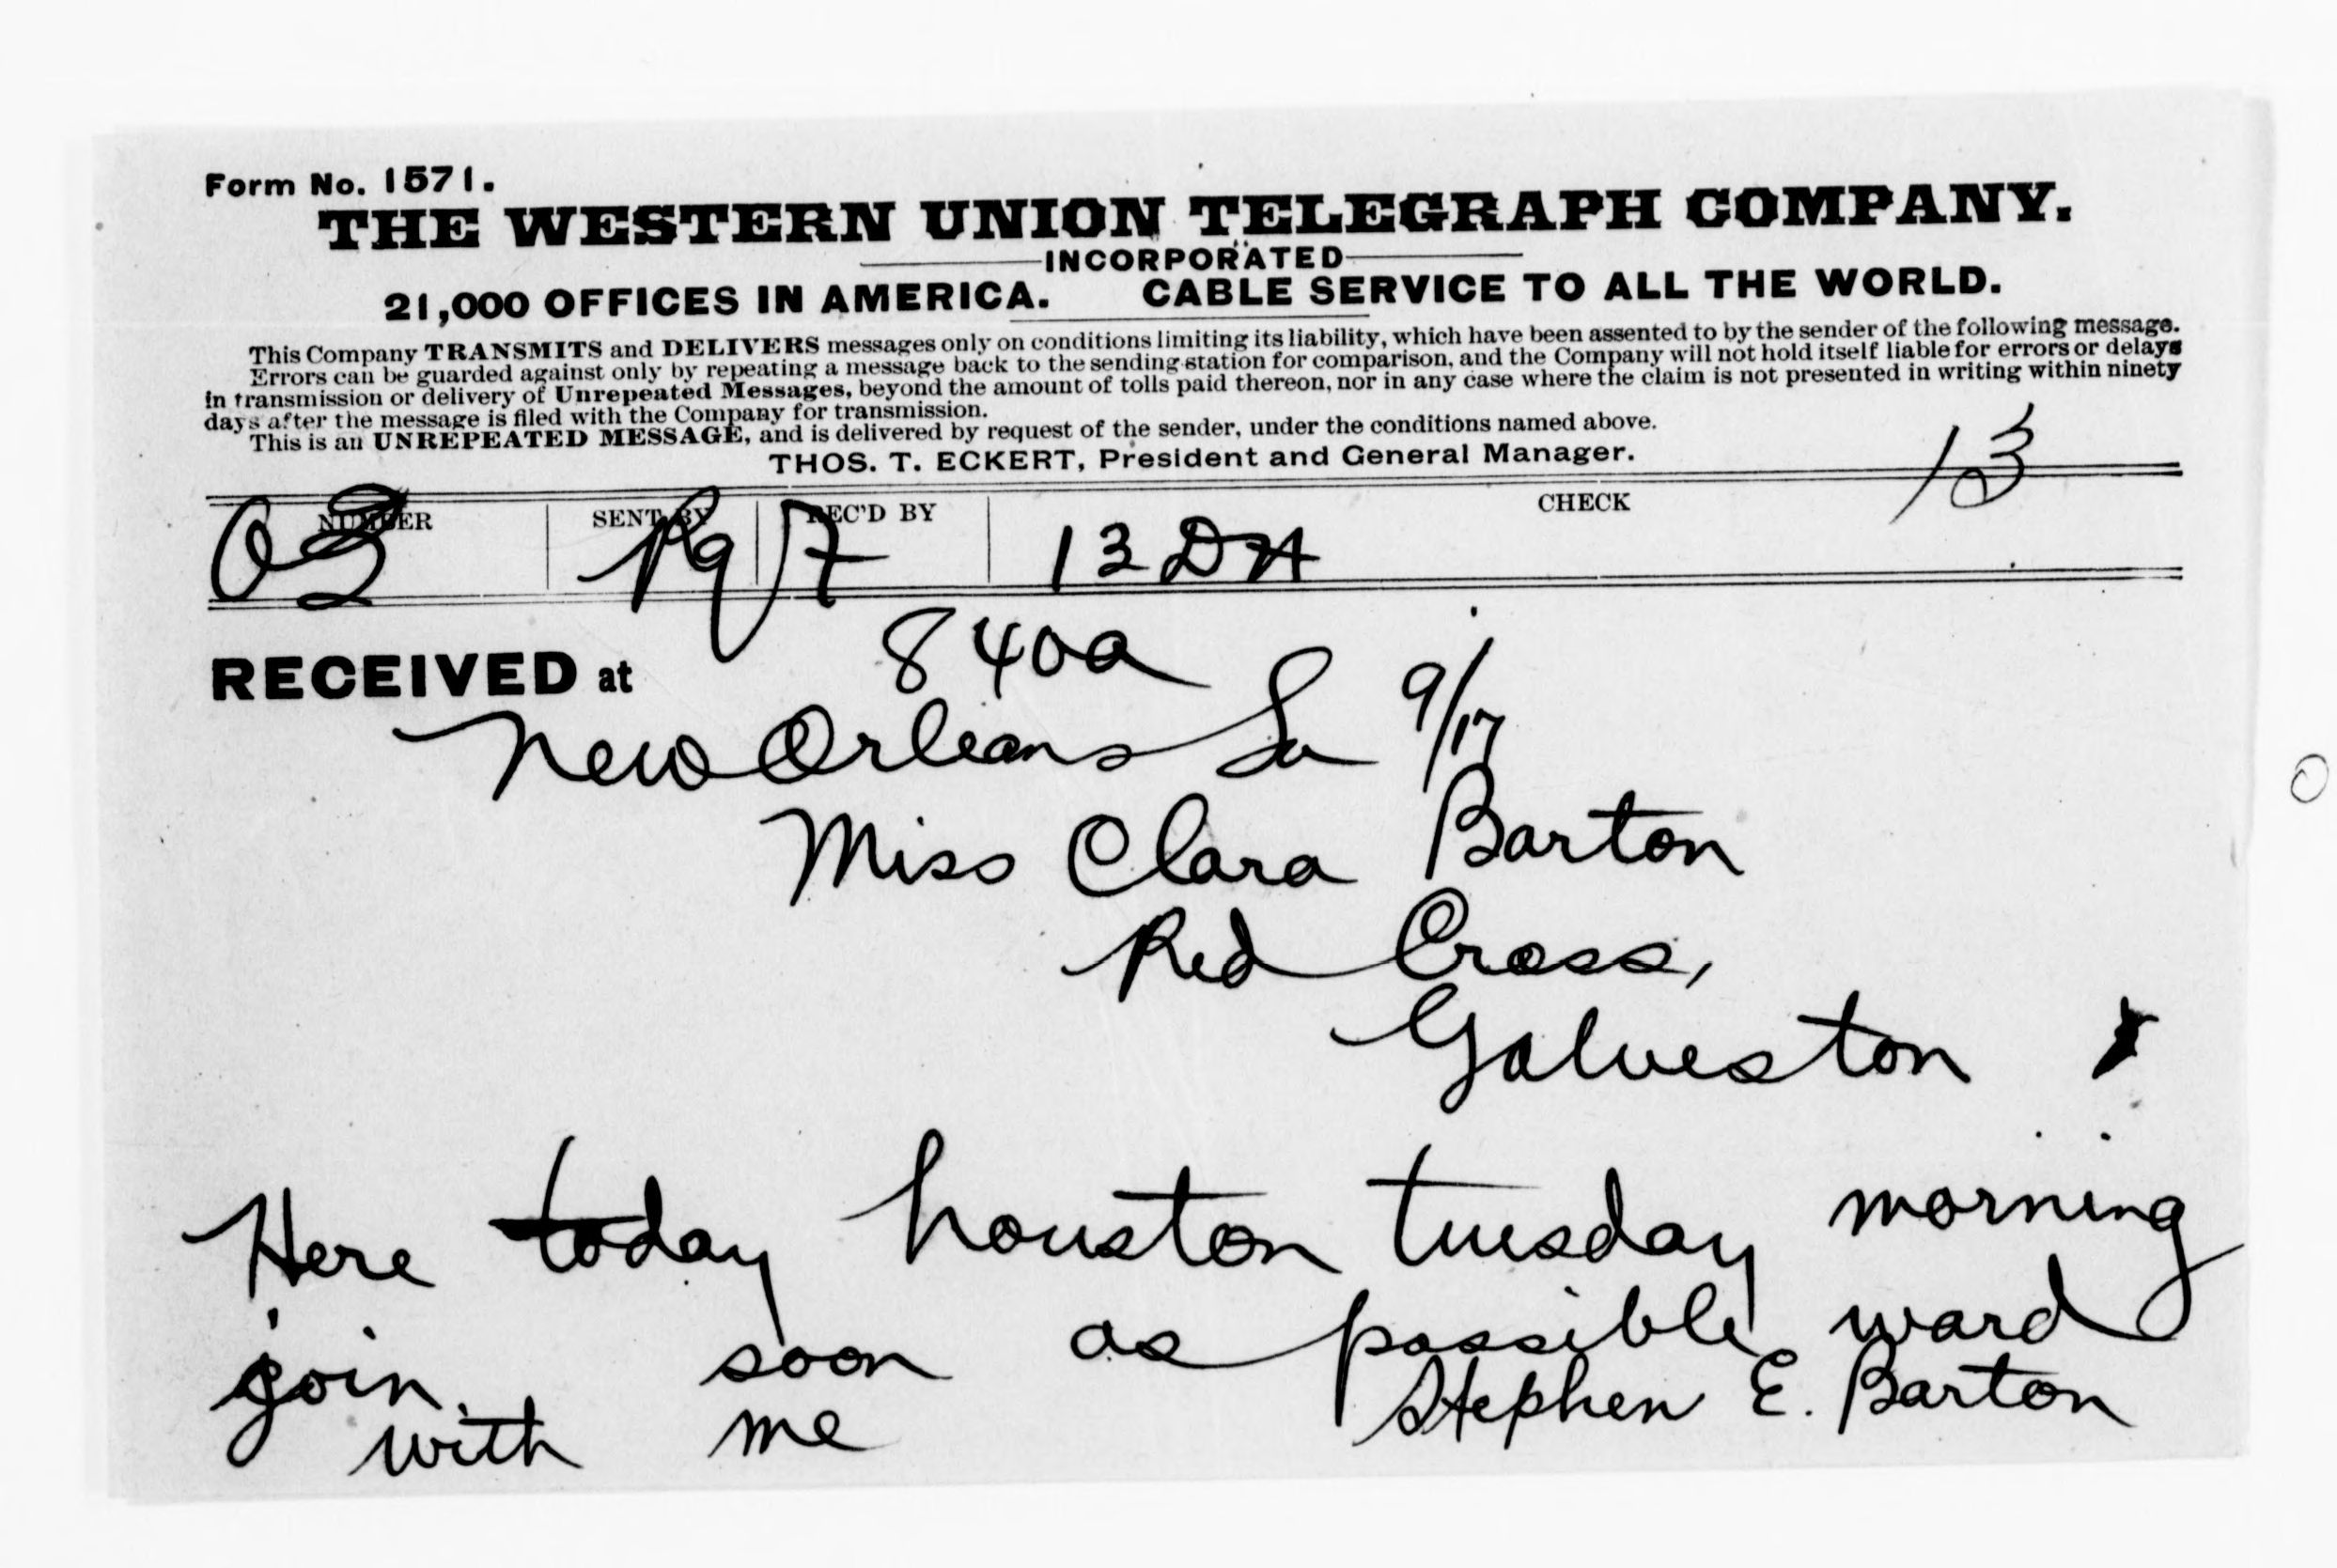 Form No. 1571.
THE WESTERN UNION TELEGRAPH COMPANY.
INCORPORATED
21,000 OFFICES IN AMERICA. CABLE SERVICE TO ALL THE WORLD.
This Company TRANSMITS and DELIVERS messages only on conditions limiting its liability, which have been assented to by the sender of the following message.
Errors can be guarded against only by repeating a message back to the sending station for comparison, and the Company will not hold itself liable for errors or delays
in transmission or delivery of Unrepeated Messages, beyond the amount of tolls paid thereon, nor in any case where the claim is not presented in writing within ninety
days after the message is filed with the Company for transmission.
This is an UNREPEATED MESSAGE, and is delivered by request of the sender, under the conditions named above.
THOS. T. ECKERT, President and General Manager.
13
NUMBER SENT BY REC'D BY CHECK
13 DH
840a
RECEIVED at
New Orleans La 9/17
Miss Clara Barton
Red Cross,
Galveston
Here today houston tuesday morning
join soon as possible ward
with me Stephen E. Barton